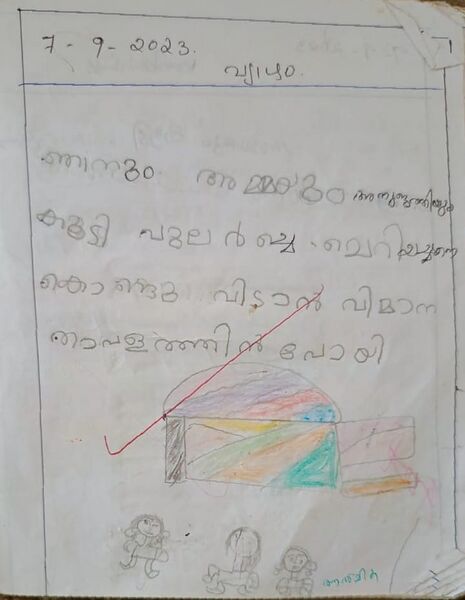 7 - 9 - 2023.
വ്യാഴം.
ഞാനും അമ്മയും അനുജത്തിയും
കൂടി പുലർച്ച ചെറിയച്ഛനെ
കൊണ്ടു വിടാൻ വിമാന
താവളത്തിൻ പോയി